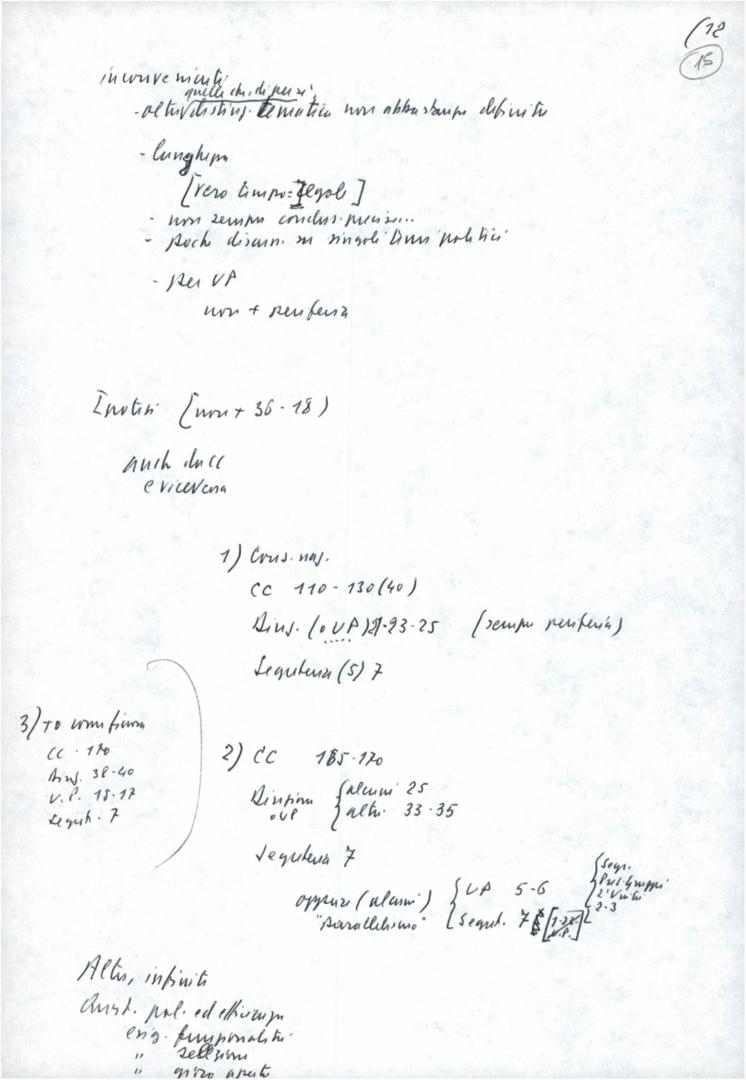 (12
15
inconvenienti
quelle che di per sé
- altra disting. tematica non abbastanza definita
- lunghezza
[vero tempo = legale]
- non sempre conclus. precise...
- poche discuss. su singoli temi politici
- per UP
non + periferia
Ipotesi [non + 36-18)
anche da CC
e viceversa
1) Cons. naz.
CC 110-130 (40)
Direz. (o UP) 21-23-25 (sempre periferia)
Segreteria (5) 7
3) To come finora
CC - 170
Direz. 38-40
U.P. 15-17
Segret. 7
2) CC 165-170
Direzione
o UP
alcuni 25
altri 33-35
Segreteria 7
oppure (alcuni)
"parallelismo"
UP 5-6
Segret. 7
Segr.
Pres. Gruppi
2 Vice
2-3
Altre, infinite
pol. ed efficienza
esig. funzionalità
" selezione
" aperto